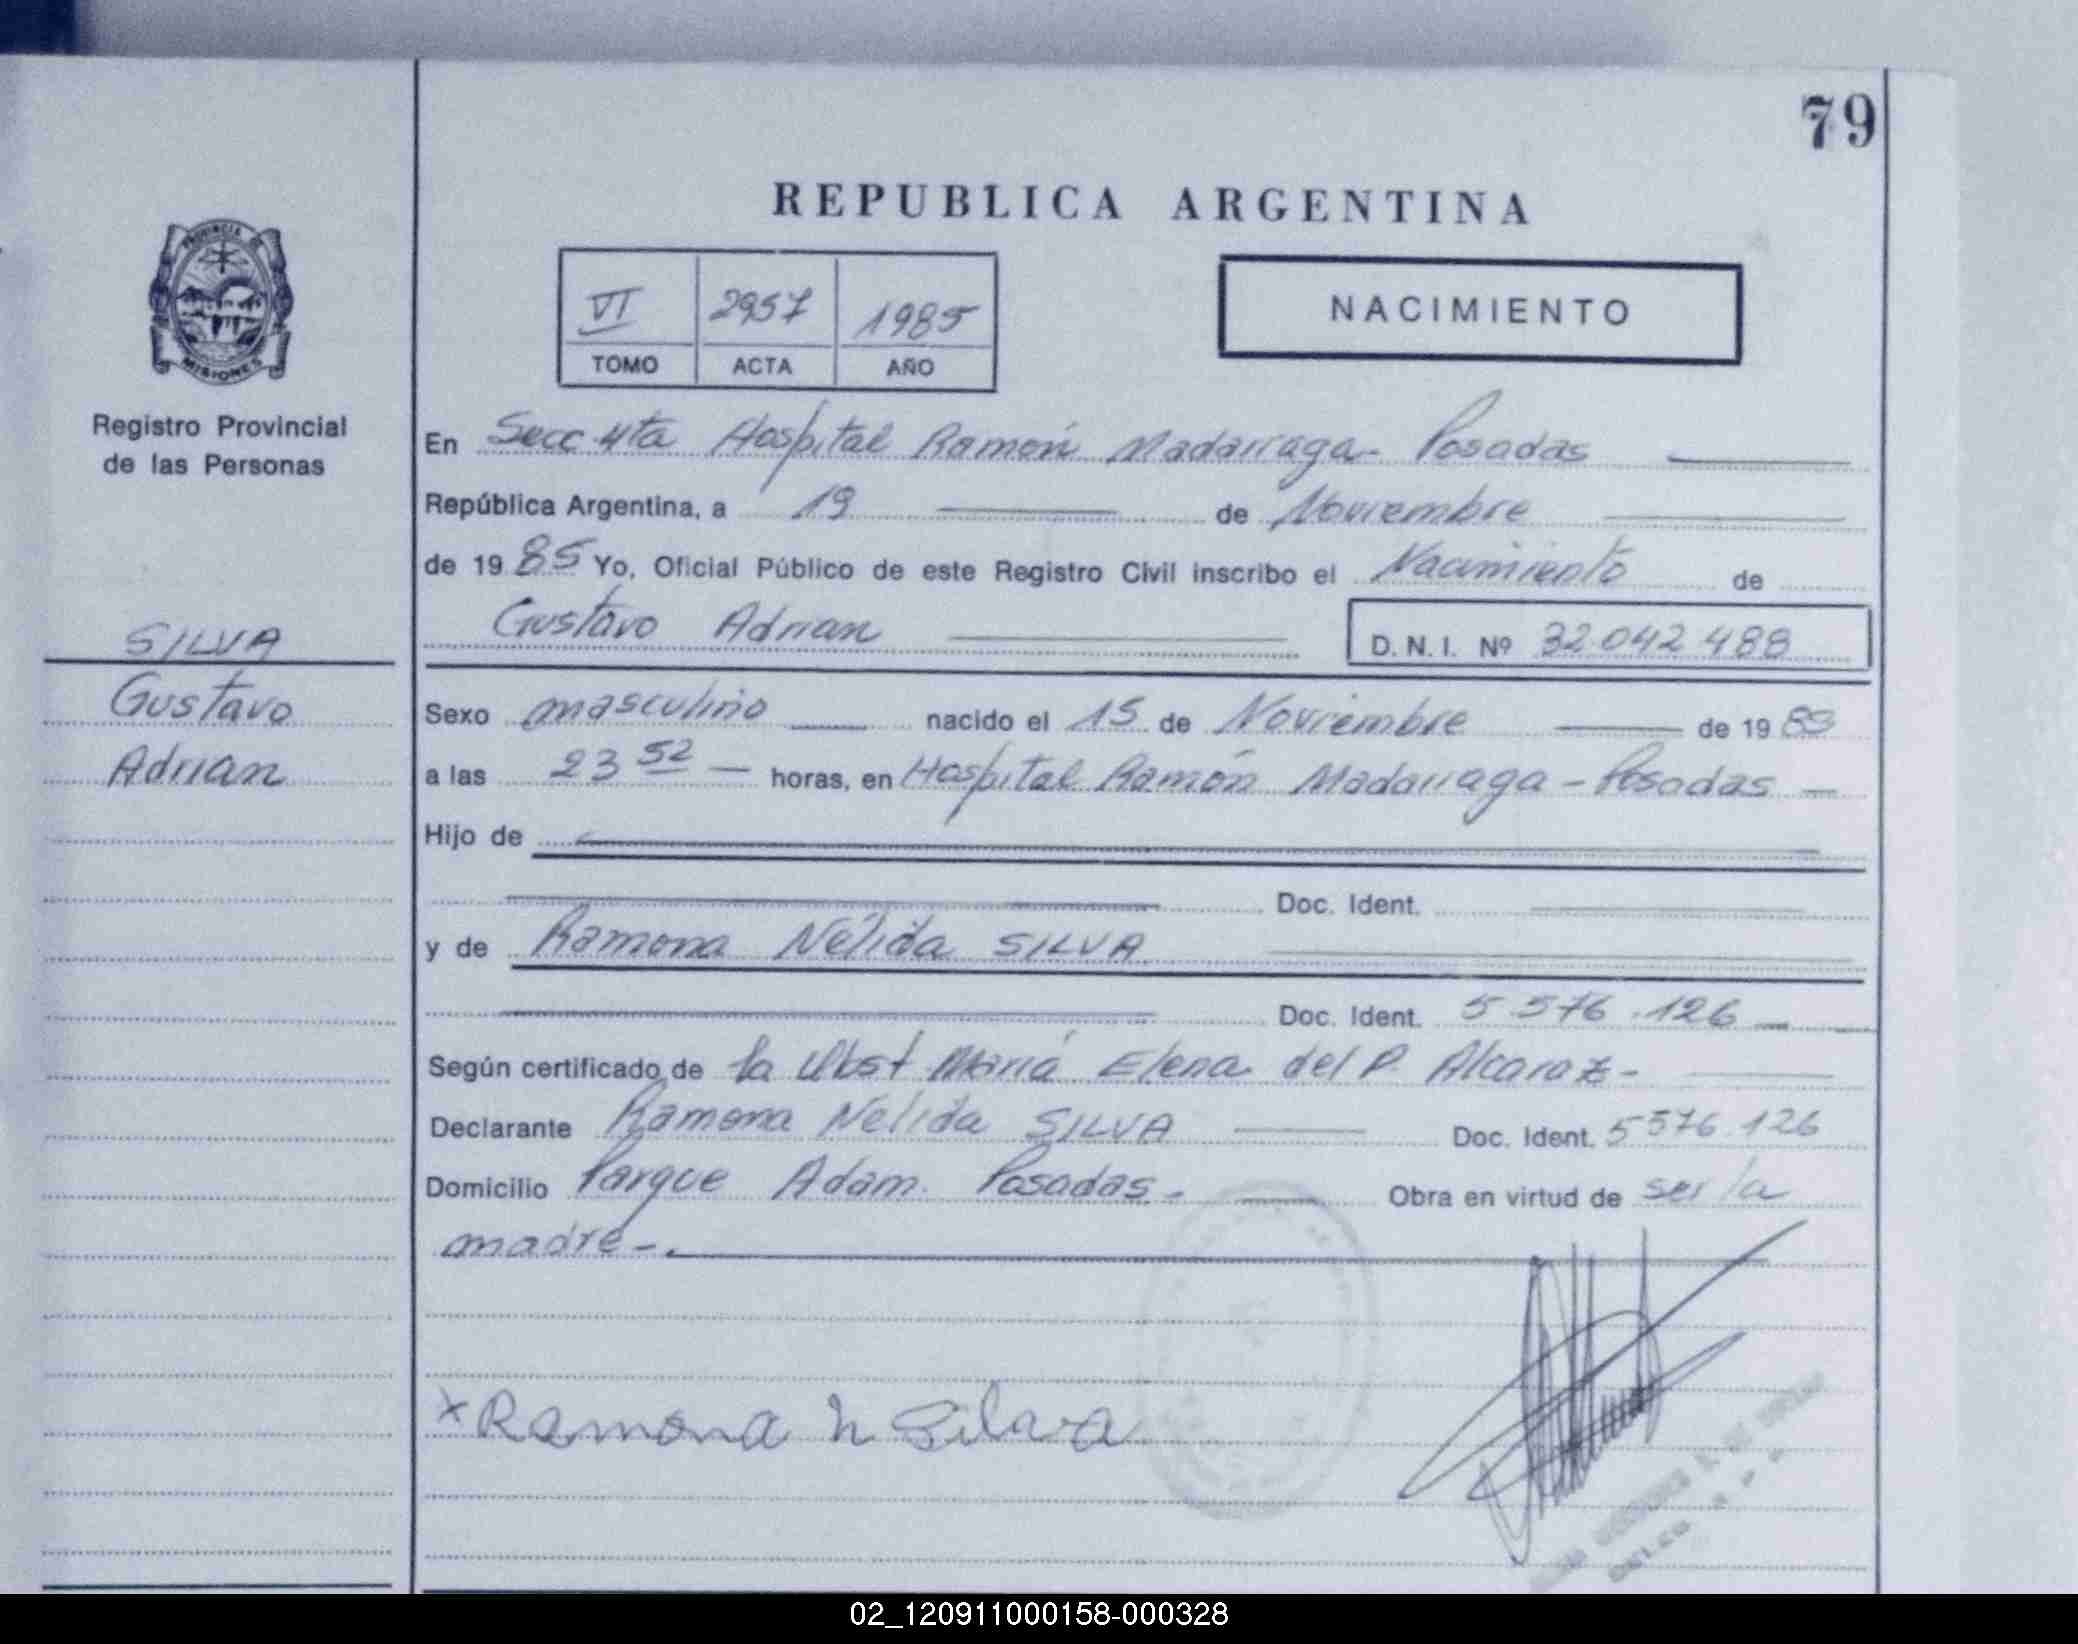 79
REPUBLICA ARGENTINA
PROVINCIA DE
MISIONES
VI 2957 1985
TOMO ACTA AÑO
NACIMIENTO
Registro Provincial
de las Personas
SILVA
Gustavo
Adrian
En Secc 4ta Hospital Ramón Madarraga - Posadas
República Argentina, a 19 de Noviembre
de 1985 Yo, Oficial Público de este Registro Civil inscribo el Nacimiento de
Gustavo Adrian D. N. I. Nº 32.042.488
Sexo masculino nacido el 15 de Noviembre de 19
a las 23 52 — horas, en Hospital Ramón Madarraga - Posadas —
Hijo de
Doc. Ident.
y de Ramona Nélida SILVA
Doc. Ident. 5.576.126
Según certificado de la Obst María Elena del P. Alcaraz -
Declarante Ramona Nelida SILVA Doc. Ident. 5576.126
Domicilio Parque Adam. Posadas - Obra en virtud de ser la
madre -
x Ramona N Silva
02_120911000158-000328